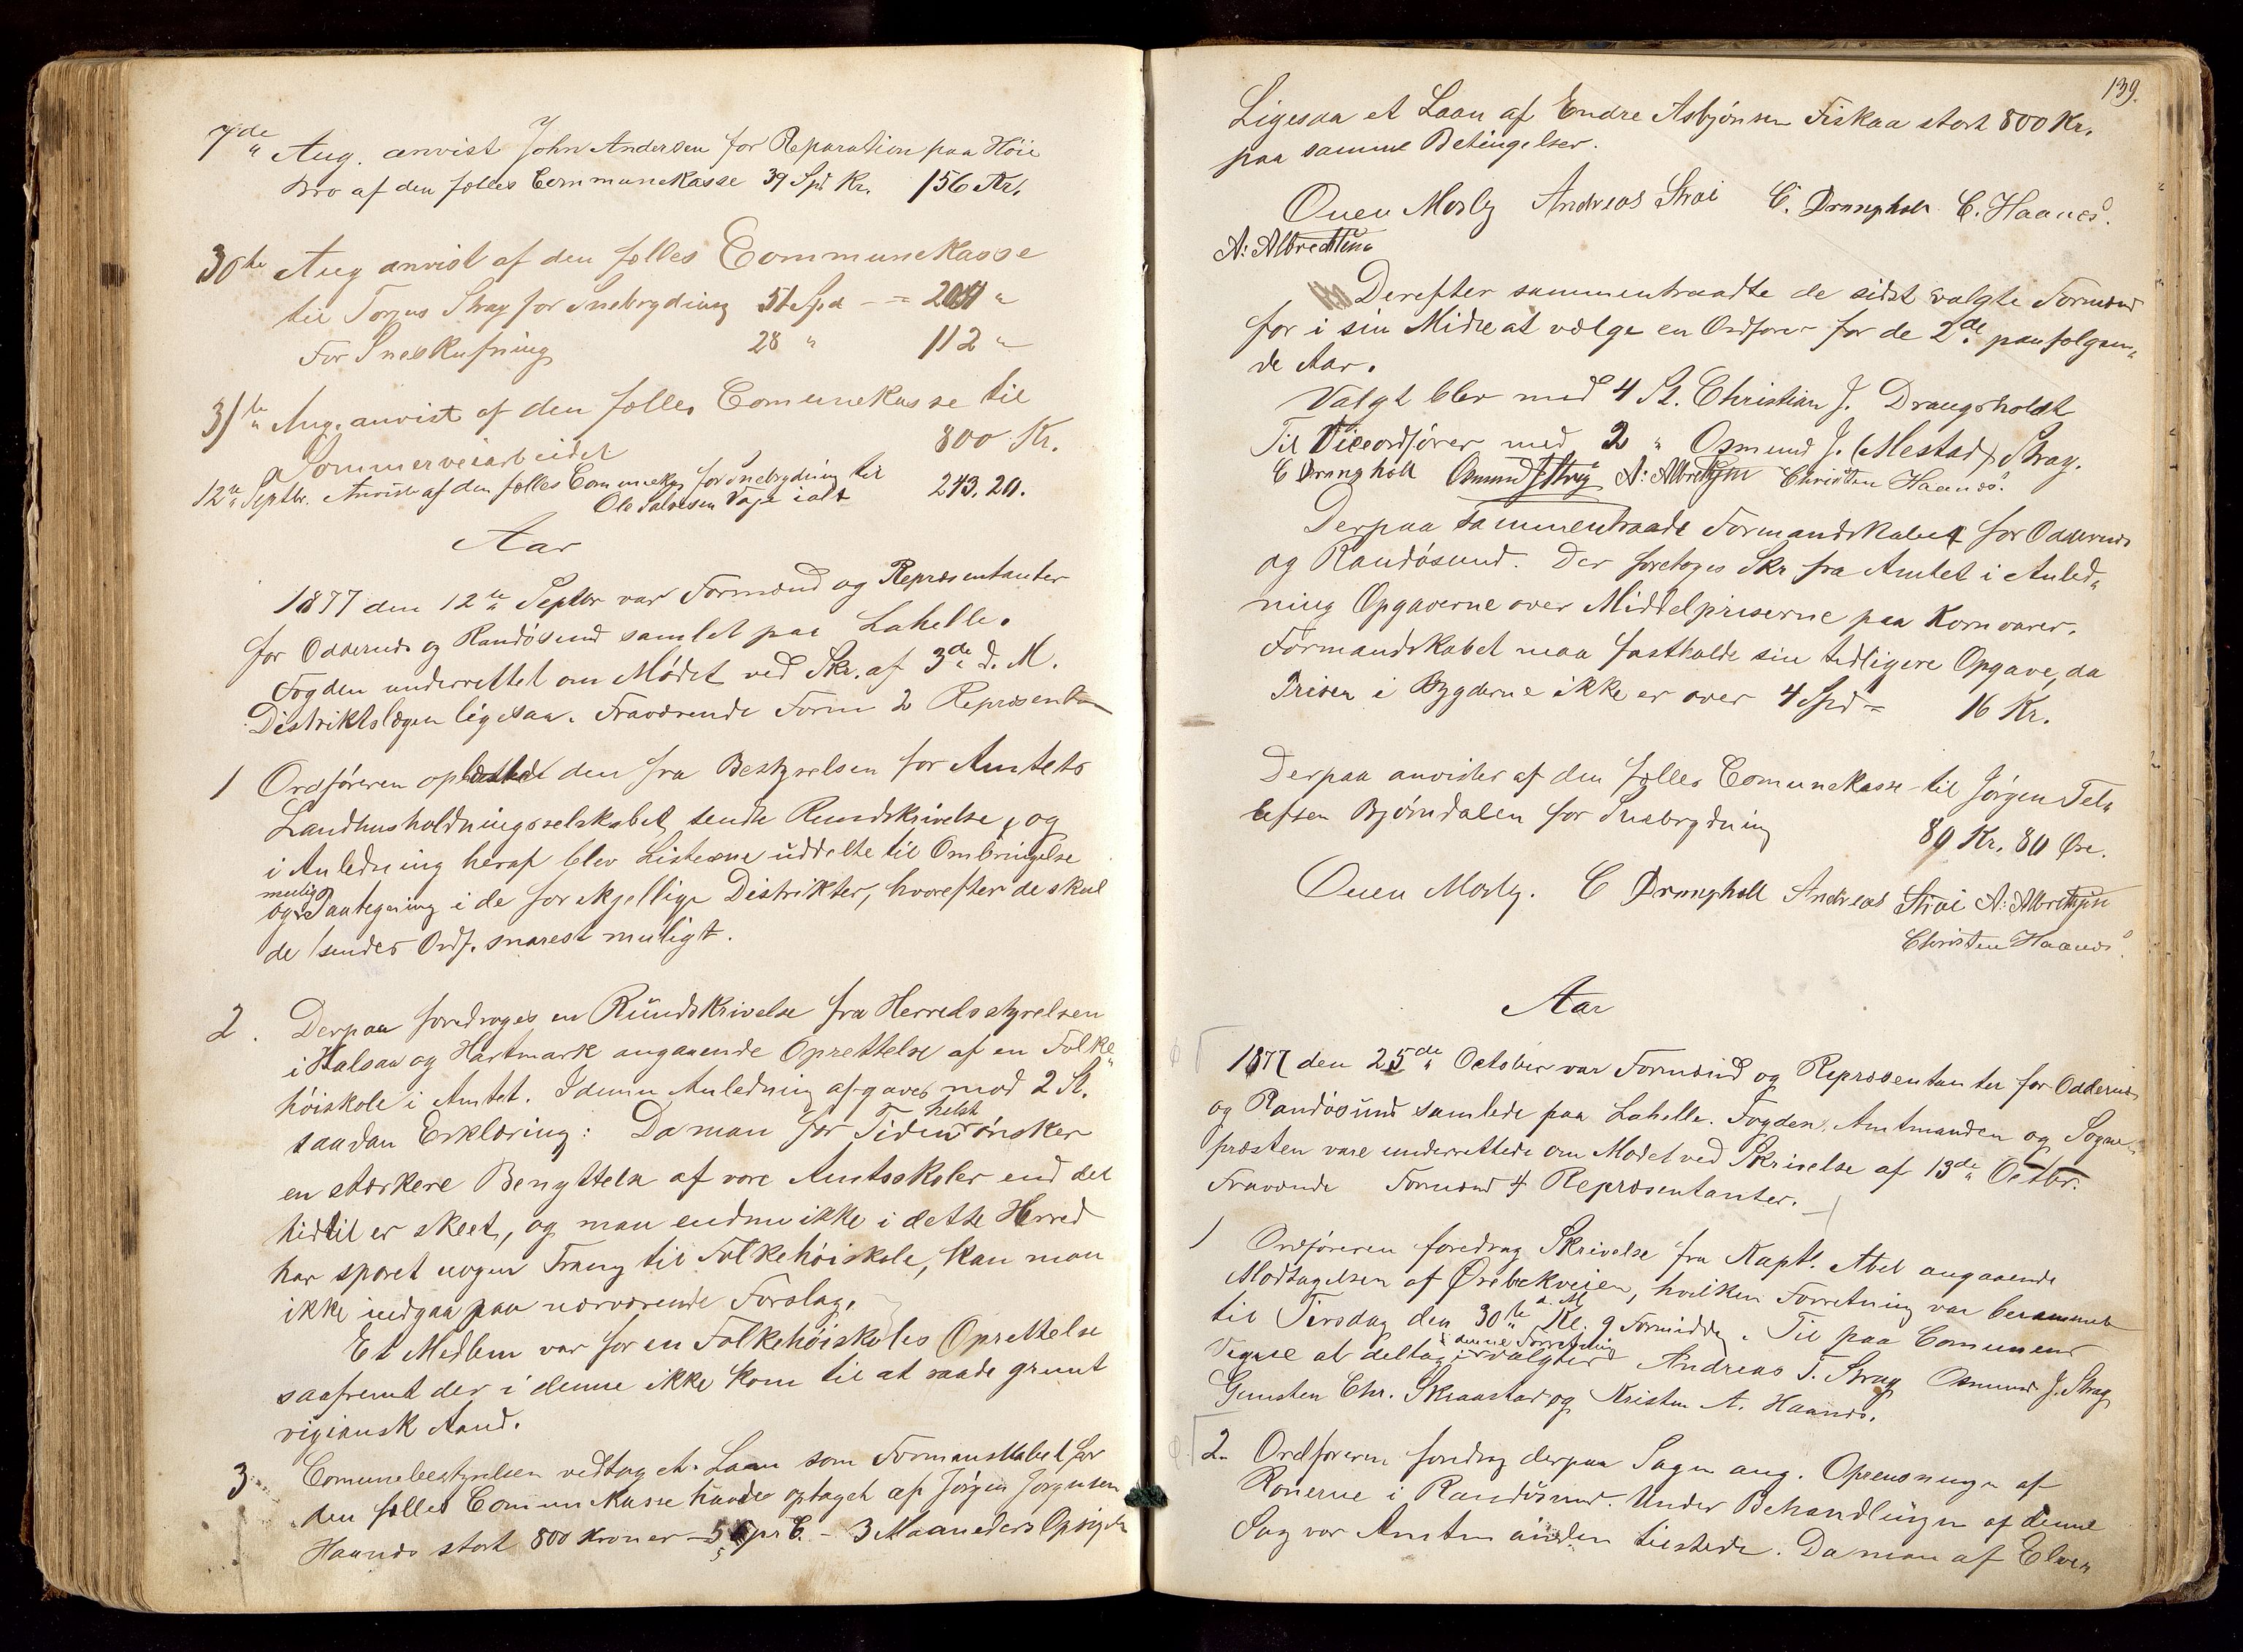 7de Aug. anvist John Andersen for Reparation paa Höie
Bro af den fælles Communekasse 39 Spd Kr. 156 Kr.
30te Aug anvist af den fælles Communekasse
til Torjus Stray for Snebrydning 51 Spd - = 204 "
For Sneskufning 28 " 112 "
31te Aug. anvist af den fælles Comunekasse til
Sommerveiarbeidet 800 Kr.
12te Septbr. Anvist af den fælles Comunekas for Snebrydning til
Ole Salvesen Vaje ialt 243.20.
Aar
1877 den 12te Septbr var Formænd og Repræsentanter
for Oddernes og Randösund samlet paa Lahelle.
Fogden underrettet om Mødet ved Skr. af 3de d. M.
Distriktslægen ligesaa. Fraværende Form 2 Repræsentan
1 Ordføreren oplæste den fra Bestyrelsen for Amtets
Landhusholdningsselskabet sendte Rundskrivelse, og
i Anledning heraf blev Listerne uddelte til Ombringelse
og mulig Paategning i de forskjellige Distrikter, hvorefter de skul
de sendes Ordf. snarest muligt.
2. Derpaa foredroges en Rundskrivelse fra Herredsstyrelsen
i Halsaa og Hartmark angaaende Oprettelse af en Folke"
höiskole i Amtet. I denne Anledning afgaves mod 2 St.
saadan Erklæring: Da man for Tiden helst ønsker
en stærkere Benyttelse af vore Amtsskoler end det
hidtil er skeet, og man endnu ikke i dette Herred
har sporet nogen Trang til Folkehöiskole, kan man
ikke indgaa paa nærværende Forslag.
Et Medlem var for en Folkehöiskoles Oprettelse
saafremt der i denne ikke kom til at raade grunt
vigiansk Aand.
3. Comunebestyrelsen vedtog et Laan som Formanskabet for
den fælles Commun Kasse havde optaget af Jörgen Jörgensen
Haanes stort 800 Kroner - 5 pr C. - 3 Maaneders Opsigelse
139.
Ligesaa et Laan af Endre Asbjönsen Fiskaa stort 800 Kr.
paa samme Betingelser.
Ouen Mosby Andreas Strai C. Drangholt C. Haanes.
A: Albrechtsen
Derefter sammentraadte de sidst valgte Formænd
for i sin Midte at vælge en Ordfører for de 2de paafølgen"
de Aar.
Valgt blev med 4 St. Christian J. Drangsholdt
Til Viceordfører med 2 " Osmund J. (Mestad) Stray.
C Drangholt Osmund J Stray A: Albrethsen Christen Haanes.
Derpaa sammentraadte Formandskabet for Oddernes
og Randösund. Der foretoges Skr fra Amtet i Anled"
ning Opgaverne over Middelpriserne paa Kornvarer.
Formandskabet maa fastholde sin tidligere Opgave, da
Prisen i Bygderne ikke er over 4 Spd = 16 Kr.
Derpaa anvistes af den fælles Comunekasse til Jörgen Tel"
lefsen Bjørndalen for Snebrydning 89 Kr. 80 Øre.
Ouen Mosby. C Drangholt Andreas Strai A: Albrethsen
Christen Haanes.
Aar
1877 den 25de October var Formænd og Repræsentanter for Oddernes
og Randösund samlede paa Lahelle. Fogden, Amtmanden og Sogne"
præsten vare underrettede om Mødet ved Skrivelse af 13de Octbr.
Fravænde Formænd 4 Repræsentanter.
1 Ordføreren foredrog Skrivelse fra Kapt. Abel angaaende
Modtagelsen af Ørebækveien, hvilken Forretning var berammet
til Tirsdag den 30te d. M. Kl. 9 Formiddag. Til paa Comunens
Vegne at deltage i denne Forretning valgtes Andreas T. Stray Osmund J. Stray
Gunsten Chr. Skraastad og Kristen A. Haanes.
2. Ordføreren foredrog derpaa Sagen ang. Oprensningen af
Ronerne i Randösund. Under Behandlingen af denne
Sag var Amtmanden tilstede. Da man af Elven